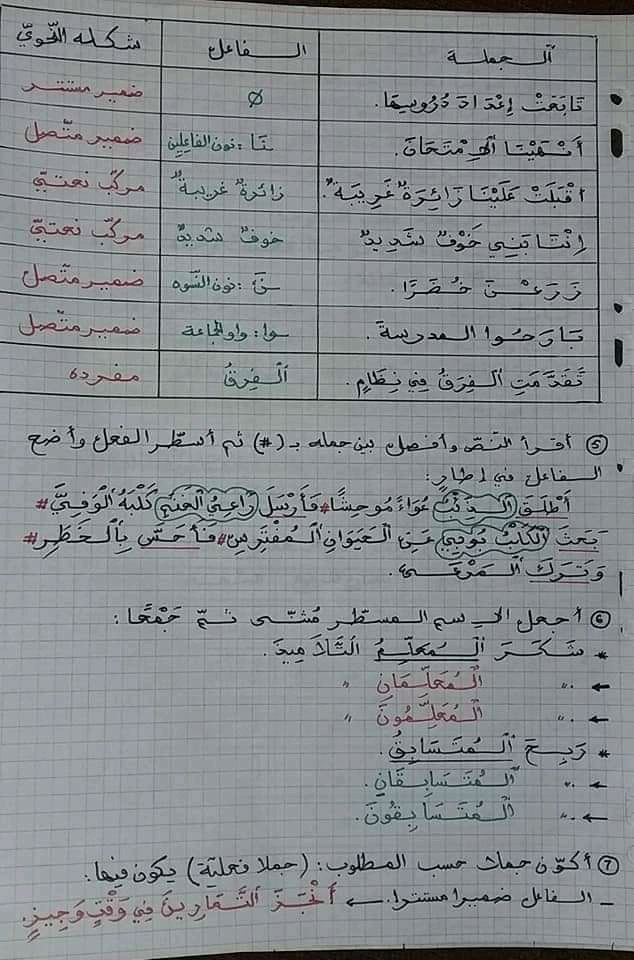 الجملة | الفاعل | شكله النّحويّ
تَابَعَتْ إِعْدَادَ دُرُوسِهَا. | Ø | ضمير مستتر
أَنْهَيْنَا الاِمْتِحَانَ. | نَا: نون الفاعلين | ضمير متّصل
أَقْبَلَتْ عَلَيْنَا زَائِرَةٌ غَرِيبَةٌ. | زائرةٌ غريبةٌ | مركّب نعتيّ
اِنْتَابَنِي خَوْفٌ شَدِيدٌ | خوفٌ شديدٌ | مركّب نعتيّ
زَرَعْنَ خُضَرًا. | نَ: نون النّسوة | ضمير متّصل
بَارَحُوا المدرسةَ. | وا: واو الجماعة | ضمير متّصل
تَقَدَّمَتِ الفِرَقُ فِي نِظَامٍ. | الفِرَقُ | مفردة
⑤ أقرأ النّصّ وأفصل بين جمله بـ (#) ثم أسطّر الفعل وأضع
الفاعل في إطارٍ:
أَطْلَقَ الذِّئْبُ عُوَاءً مُوحِشًا # فَأَرْسَلَ رَاعِي الغَنَمِ كَلْبَهُ الوَفِيَّ #
بَحَثَ الكَلْبُ بُوبِي عَنِ الحَيَوَانِ المُفْتَرِسِ # فَأَحَسَّ بِالخَطَرِ #
وَتَرَكَ المَرْعَى.
⑥ أجعل الاسم المسطّر مُثنّى ثمّ جَمْعًا:
* شَكَرَ المُعَلِّمُ التَّلَامِيذَ.
← ،، المُعَلِّمَانِ ،،
← ،، المُعَلِّمُونَ ،،
* رَبِحَ المُتَسَابِقُ.
← ،، المُتَسَابِقَانِ.
← ،، المُتَسَابِقُونَ.
⑦ أكوّن جملا حسب المطلوب: (جملا فعلية) يكون فيها.
ـ الفاعل ضميرا مستترا. ← أَنْجَزَ التَّمَارِينَ فِي وَقْتٍ وَجِيزٍ.